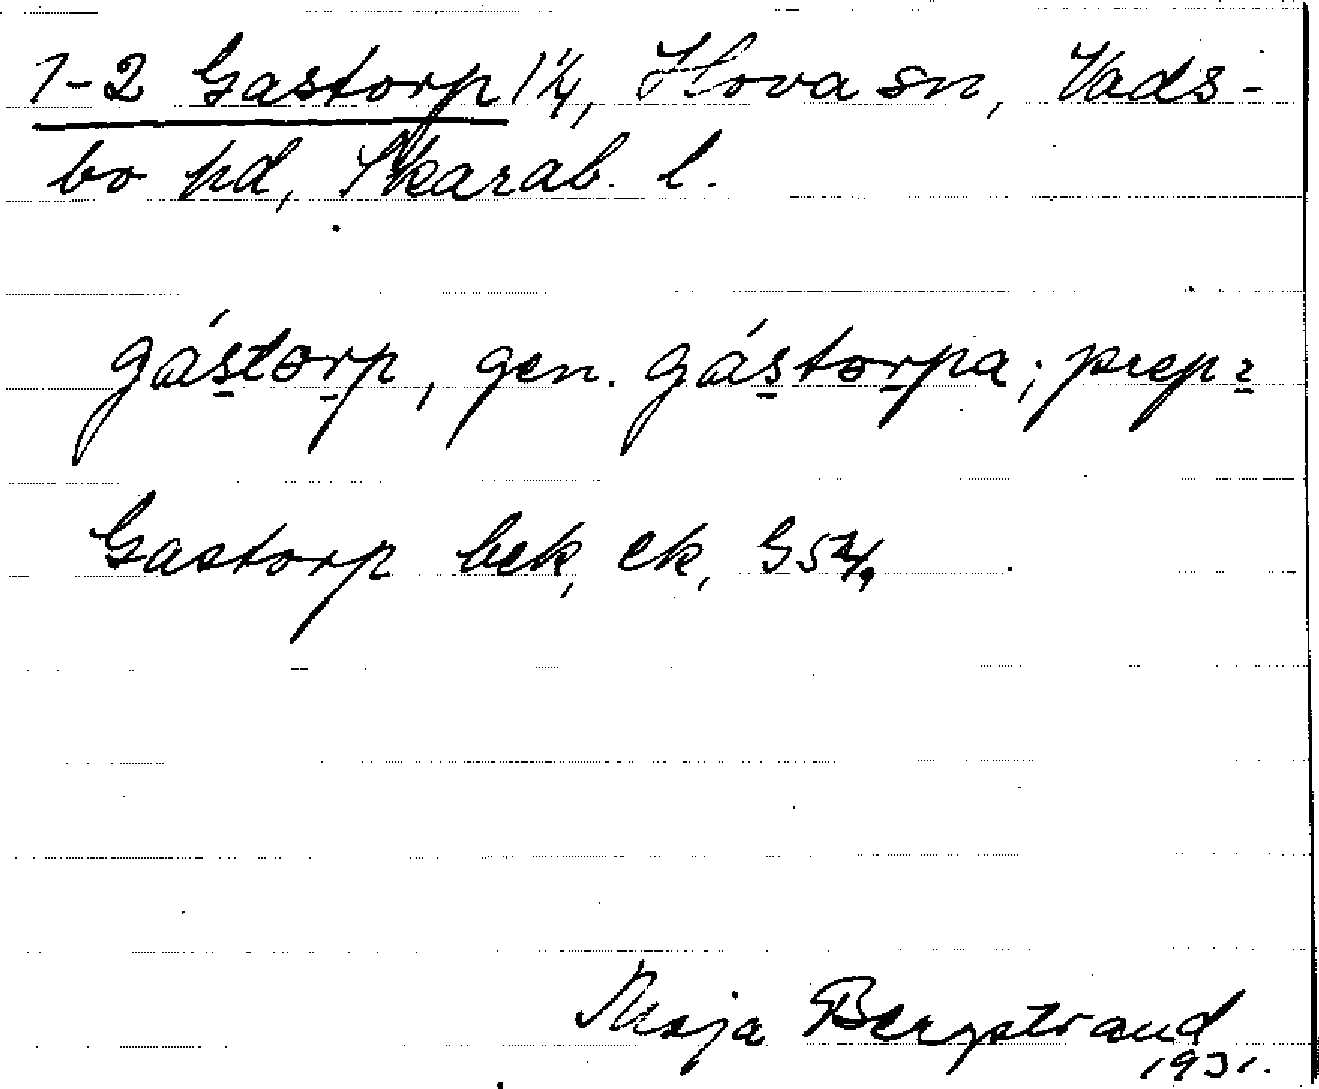 1-2 Gastorp 1 1/4, Hova sn, Vads-
bo hd, Skarab. l.
gástorp, gen. gástorpa; prep.
Gastorp bek, ek,
Maja Bergstrand
1931.